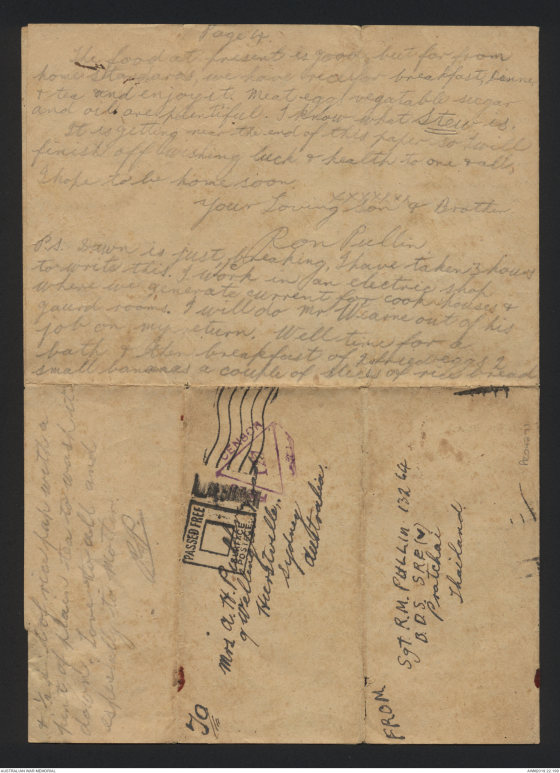 Page 4.
The food at present is good, but far from
home standards, we have rice for breakfast, dinner
& tea and enjoy it, meat egg vegatable sugar
and oil are plentiful. I know what Stew is.
It is getting near the end of this paper so I will
finish off wishing luck & health to one & all,
I hope to be home soon.
Your Loving Son & Brother
xxxxxxx
Ron Pullin
P.S. Dawn is just breaking, I have taken 3 hours
to write this. I work in an electric shop
where we generate current for cook houses &
gaurd rooms. I will do Mr Wearne out of his
job on my return. Well time for a
bath & then breakfast of 2 fried eggs 2
small bananas a couple of slices of rice bread
& of rice pap with a
pint of plain tea to wash it
down. Love to all and
especially to Mother
RP
CENSOR
PASSED FREE
SURFACE
POSTAGE
To
Mrs A. H.
9
Hurstville,
Sydney
Australia.
FROM
Sgt R.M. PULLIN 13264
B.D.S. S.R.E
Pratchai
Thailand
AUSTRALIAN WAR MEMORIAL